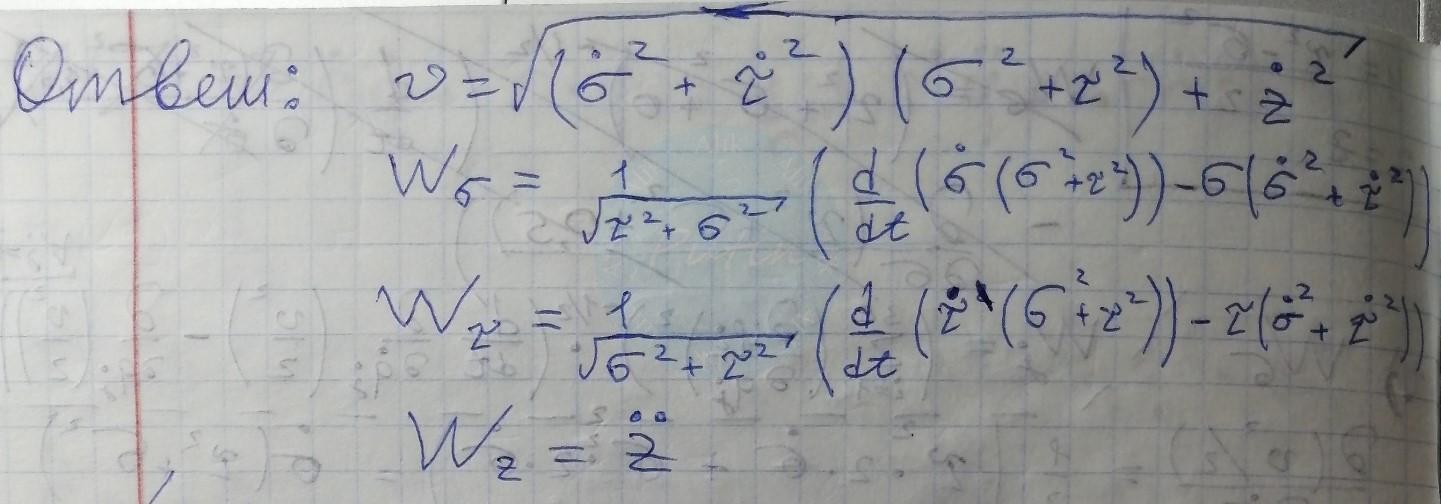 Ответ: v = √((σ̇² + τ̇²)(σ² + τ²) + ż²)
W_σ = 1/√(τ² + σ²) (d/dt (σ̇(σ² + τ²)) - σ(σ̇² + τ̇²))
W_τ = 1/√(σ² + τ²) (d/dt (τ̇(σ² + τ²)) - τ(σ̇² + τ̇²))
W_z = z̈